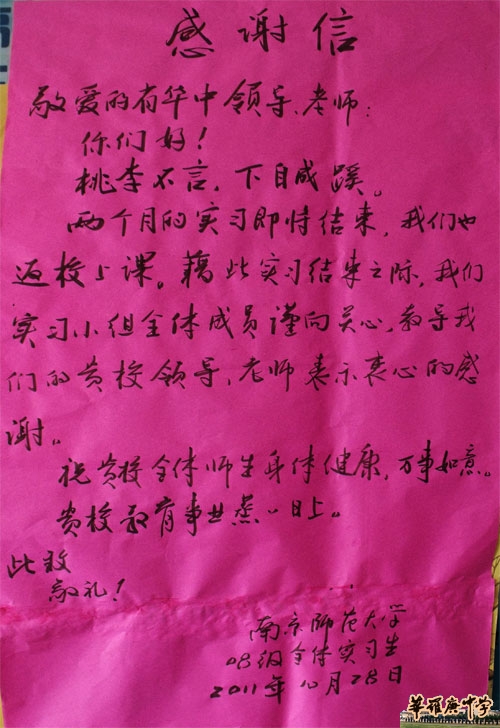 感谢信
敬爱的有华中领导、老师:
你们好!
桃李不言,下自成蹊。
两个月的实习即将结束,我们也
返校上课。藉此实习结束之际,我们
实习小组全体成员谨向关心、教导我
们的贵校领导、老师表示衷心的感
谢。
祝贵校全体师生身体健康,万事如意。
贵校教育事业蒸〃日上。
此致
敬礼!
南京师范大学
08级全体实习生
2011年10月28日
华罗庚中学